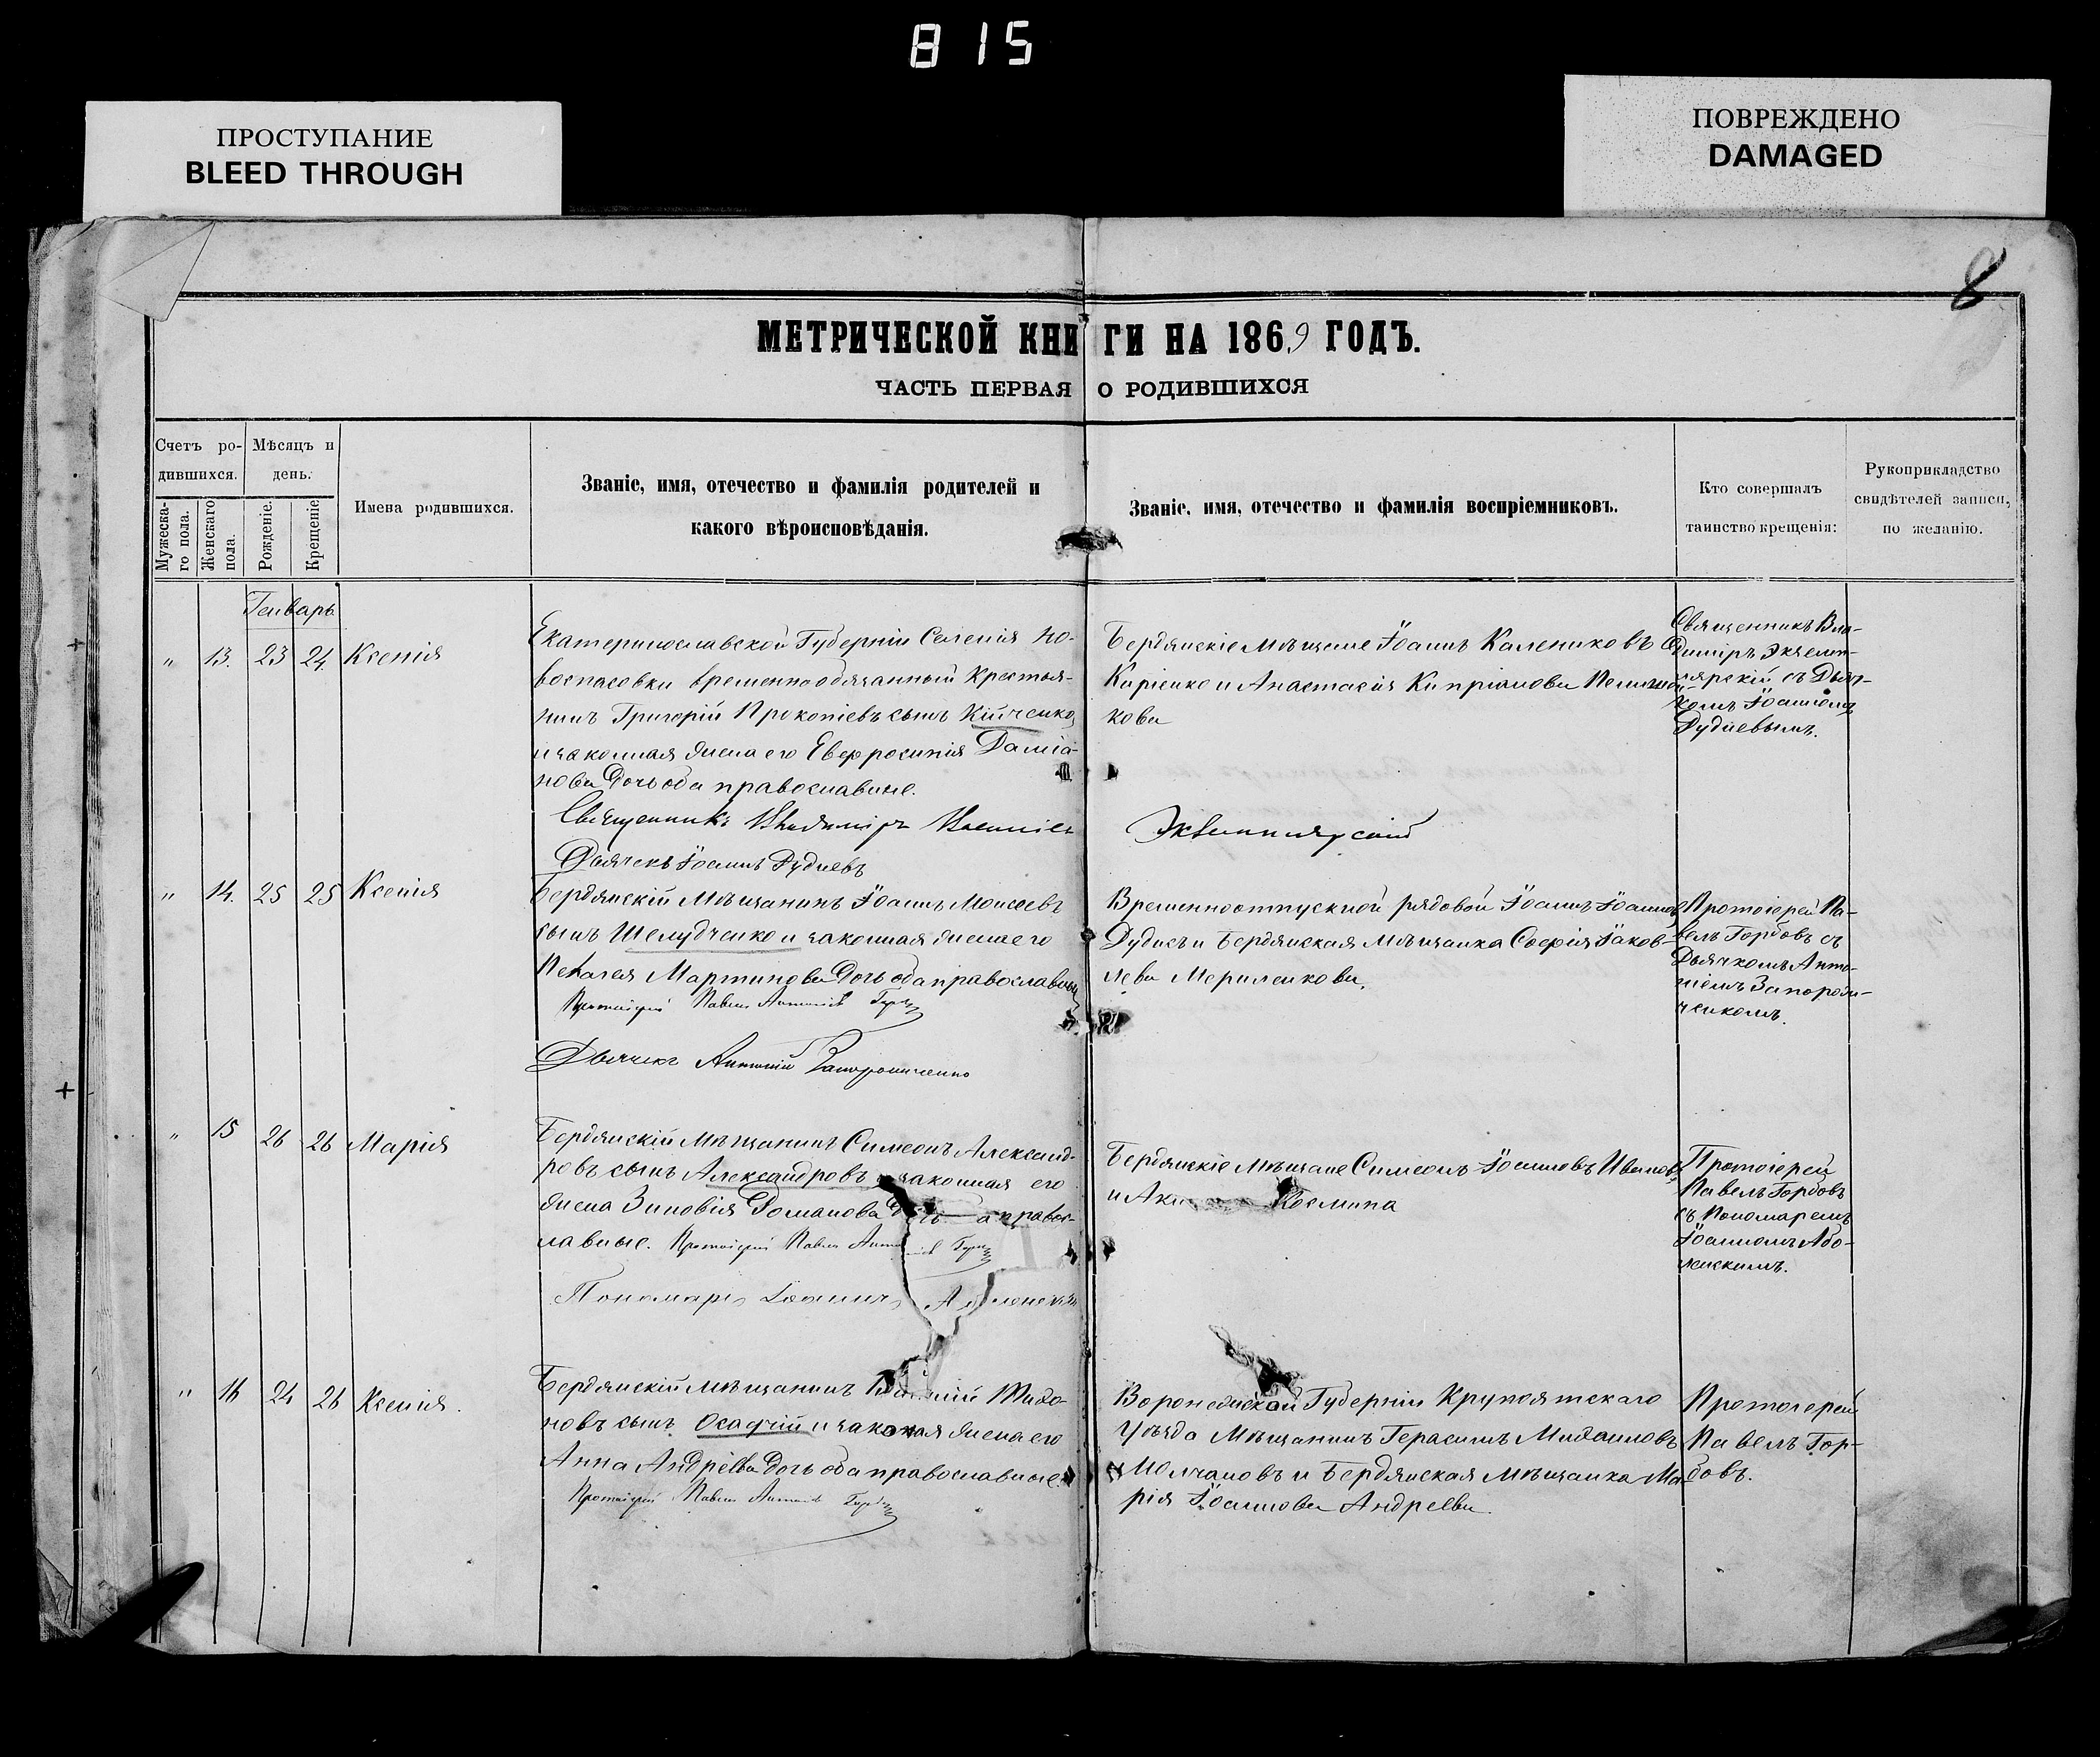 815
ПРОСТУПАНИЕ
BLEED THROUGH
ПОВРЕЖДЕНО
DAMAGED
8
МЕТРИЧЕСКОЙ КНИГИ НА 1869 ГОДЪ.
ЧАСТЬ ПЕРВАЯ О РОДИВШИХСЯ
Счетъ ро-
дившихся.
Мужеска-
го пола.
Женскаго
пола.
Мѣсяцъ и
день.
Рожденіе.
Крещеніе
Имена родившихся.
Званіе, имя, отечество и фамилія родителей и
какого вѣроисповѣданія.
Званіе, имя, отечество и фамилія воспріемниковъ.
Кто совершалъ
таинство крещенія:
Рукоприкладство
свидѣтелей записи,
по желанію.
Генварь
" 13. 23 24 Ксенія
Екатеринославской Губерніи Селенія Но-
воспасовки временнообязанный Крестья-
нинъ Григорій Прокопіевъ сынъ Кійченко,
и законная жена его Евфросинія Даміа-
нова Дочь оба православные.
Священникъ Владиміръ
Дьячекъ Іоаннъ Дудневъ
Бердянскіе мѣщане Іоаннъ Калениковъ
Киріенко и Анастасія Кипріанова
кова
Священникъ Вла-
диміръ
съ Дьяч-
комъ Іоанномъ
Дудневымъ.
" 14. 25 25 Ксенія
Бердянскій Мѣщанинъ Іоаннъ Моисеевъ
сынъ Шелудченко и законная жена его
Пелагея Мартинова Дочь оба православные
Протоіерей Павелъ
Дьячекъ Антоній
Временноотпускной рядовой Іоаннъ Іоанновъ
Дудневъ и Бердянская Мѣщанка Софія Іаков-
лева Мериленкова.
Протоіерей Па-
велъ Горбовъ съ
Дьячкомъ Анто-
ніемъ Запорож-
ченкомъ.
" 15 26 26 Марія
Бердянскій Мѣщанинъ Симеонъ Александ-
ровъ сынъ Александровъ и законная его
жена Зиновія Романова православ-
лавные. Протоіерей Павелъ
Пономарь Іоаннъ
Бердянскіе Мѣщане Симеонъ Іоанновъ Ивановъ
и Косьмина
Протоіерей
Павелъ Горбовъ
съ Пономаремъ
Іоанномъ Або-
ленскимъ.
" 16 24 26 Ксенія.
Бердянскій мѣщанинъ
новъ сынъ Осадчій и законная жена его
Анна Андрѣева Дочь оба православные.
Протоіерей Павелъ
Воронежской Губерніи
Уѣзда Мѣщанинъ Герасимъ Михаиловъ
Молчановъ и Бердянская Мѣщанка Ма-
рія Іоаннова Андрѣева
Протоіерей
Павелъ Гор-
бовъ.